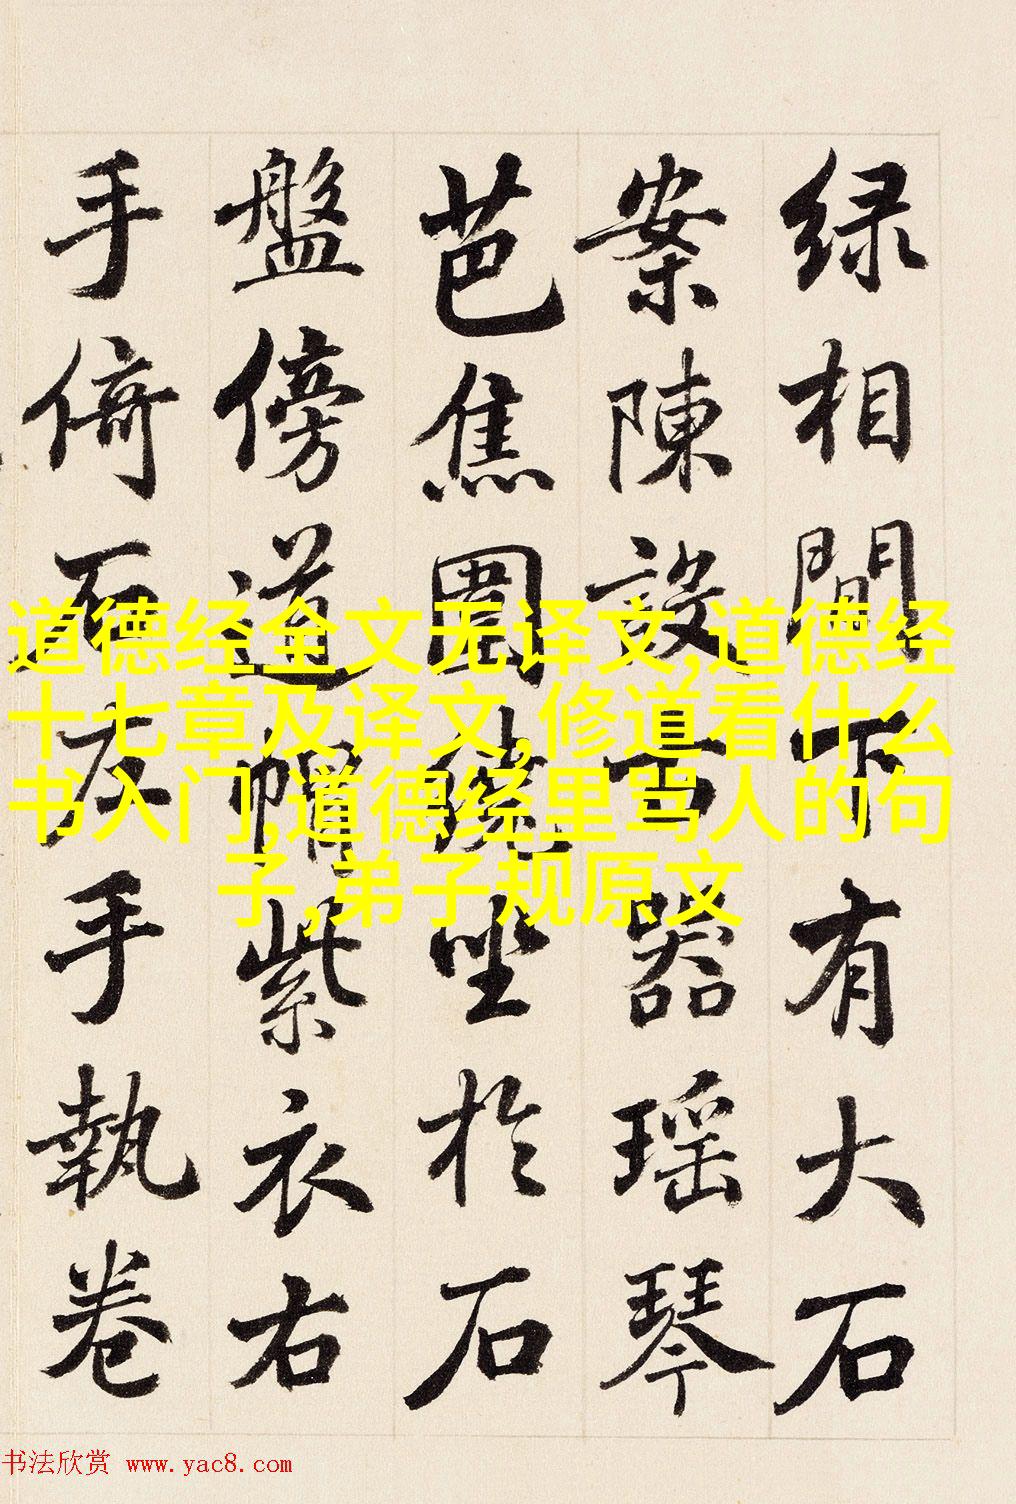 绿相間下有大石
案陳設古器瑶琴
芭焦圍繞坐於石
盤傍道帽紫衣右
手倚石左手執卷
道德经全文无译文,道德经
十七章及译文,修道看什么
书入门,道德经里骂人的句
子,弟子规原文
书法欣赏 www.yac8.com